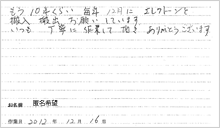 もう10年くらい 毎年 12月に エレクトーンを
搬入 搬出 お願いしています
いつも 丁寧に 作業して頂き ありがとうございます
お名前 匿名希望
作業日 2012年 12月 16日